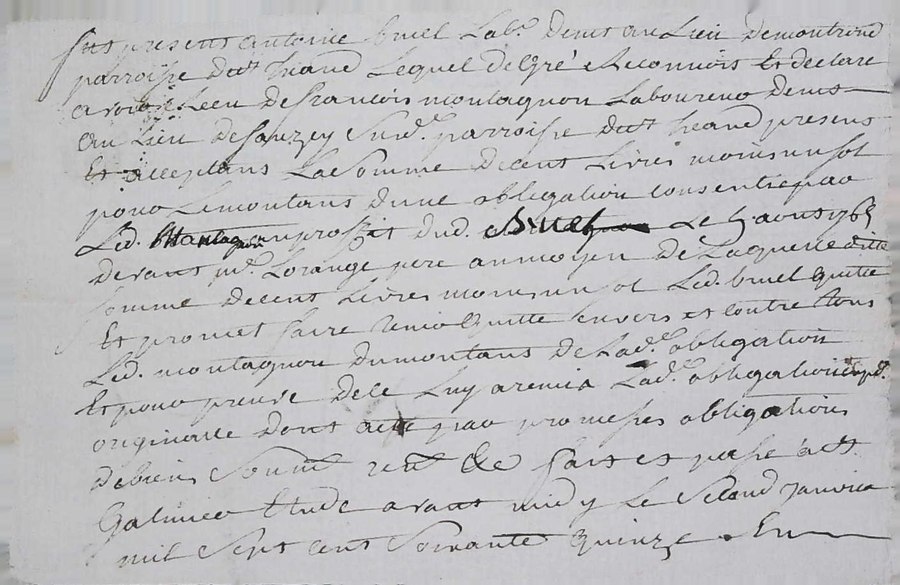 fut present antoine bruel Labr. demt au Lieu de montrond
parroisse de st heand Lequel de gré a Reconnois Et declare
avoir Receu de francois montagnon Laboureur demt
au Lieu de sauzey susd. parroisse de st heand present
Et acceptans La somme de cent Livres moins un sol
pour Le montans d'une obligation consentie par
Led. Montagnon au proffit dud. Bruel Le aoust 1765
devant me. Lorange pere au moyen de Laquelle ditte
somme de cent Livres moins un sol Led. bruel quitte
Et promet faire tenir quitte envers et contre tous
Led. montagnon du montans de Lad. obligation
Et pour preuve de ce Luy a remis Lad. obligation
originalle dont acte par promesses obligations
de biens soum. ren. &c fait et passé a st.
Galmier Etude avant midy Le second janvier
mil sept cent soixante quinze